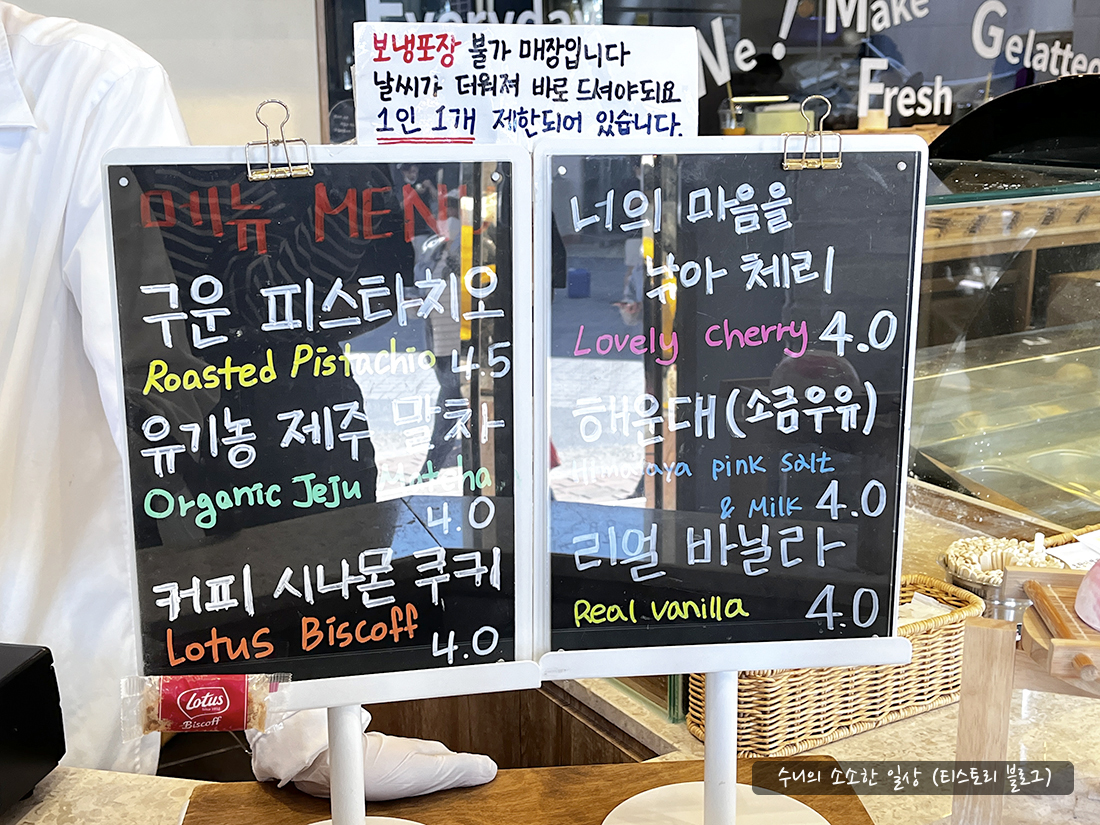 Everyday
Ne!
Make
Gelatted
Fresh
보냉포장 불가 매장입니다
날씨가 더워져 바로 드셔야되요
1인 1개 제한되어 있습니다.
메뉴 MENU
구운 피스타치오
Roasted Pistachio 4.5
유기농 제주 말차
Organic Jeju Matcha
4.0
커피 시나몬 쿠키
Lotus Biscoff 4.0
Lotus
Biscoff
너의 마음을
낚아 체리
Lovely Cherry 4.0
해운대(소금우유)
Himalaya pink salt
& Milk 4.0
리얼 바닐라
Real vanilla 4.0
수니의 소소한 일상 (티스토리 블로그)